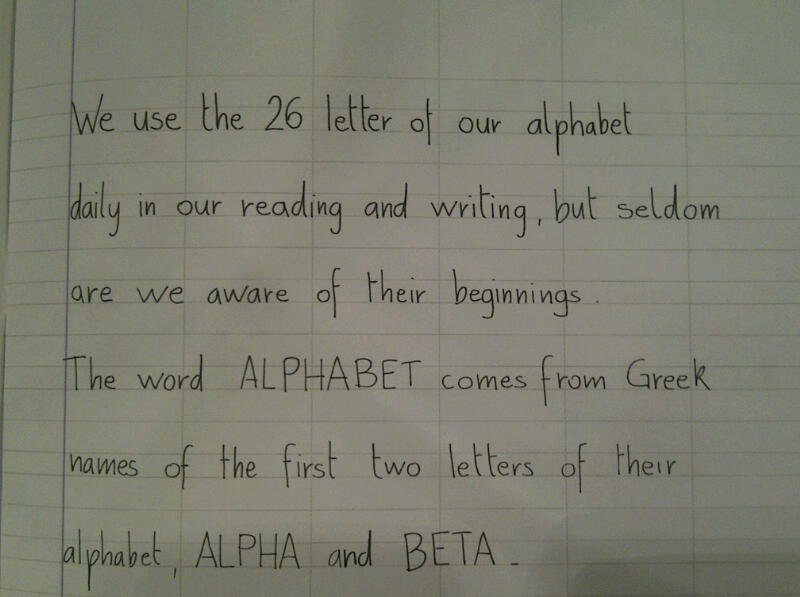 We use the 26 letter of our alphabet
daily in our reading and writing, but seldom
are we aware of their beginnings.
The word ALPHABET comes from Greek
names of the first two letters of their
alphabet, ALPHA and BETA.